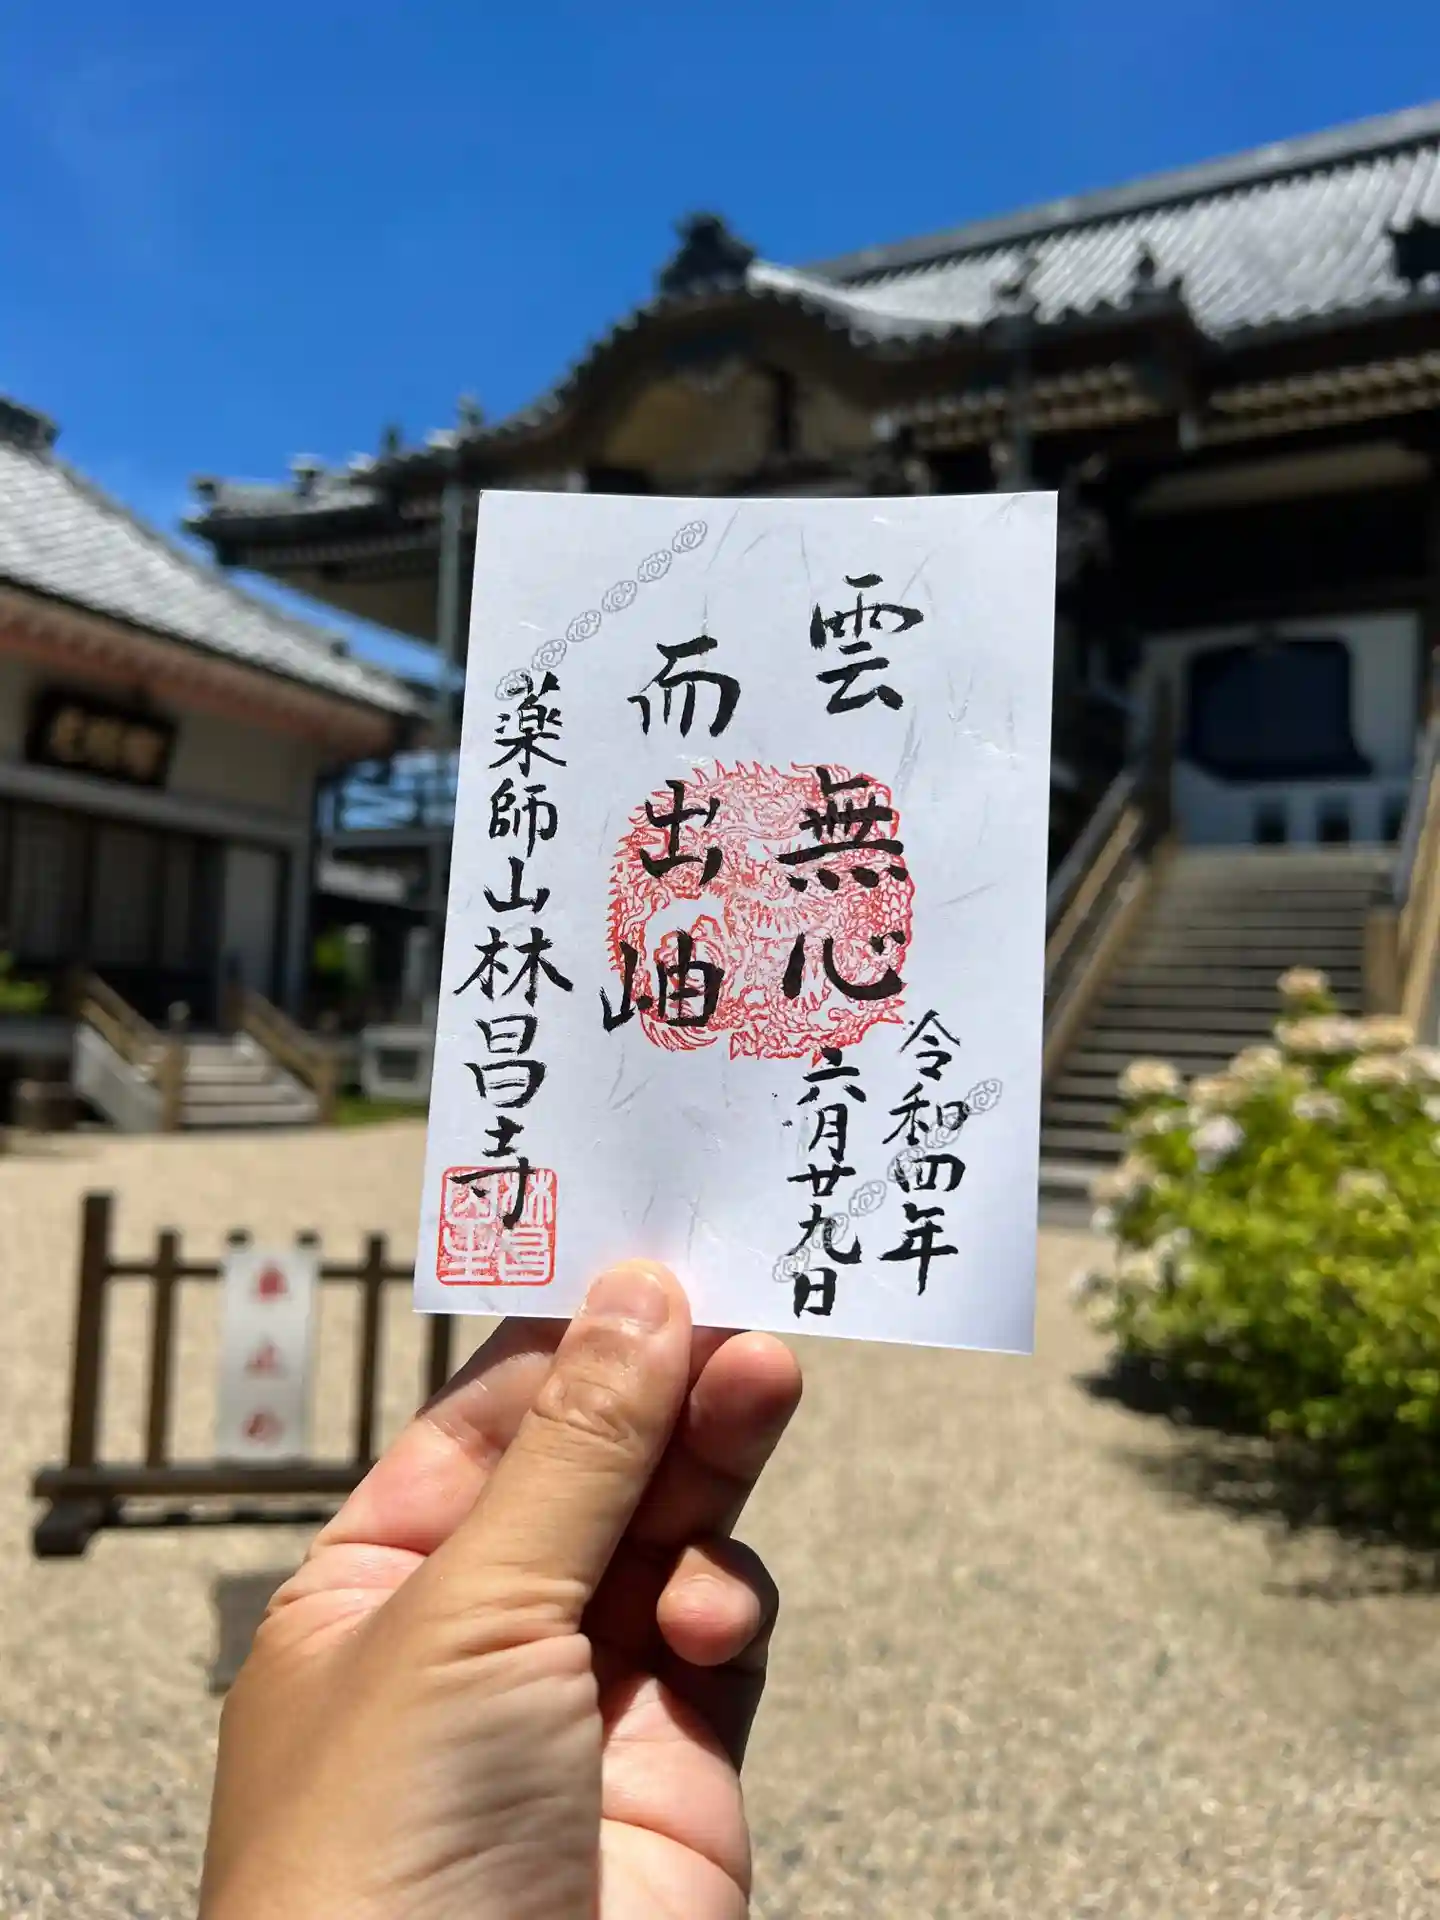 雲無心
而出岫
令和四年
六月廿九日
薬師山林昌寺